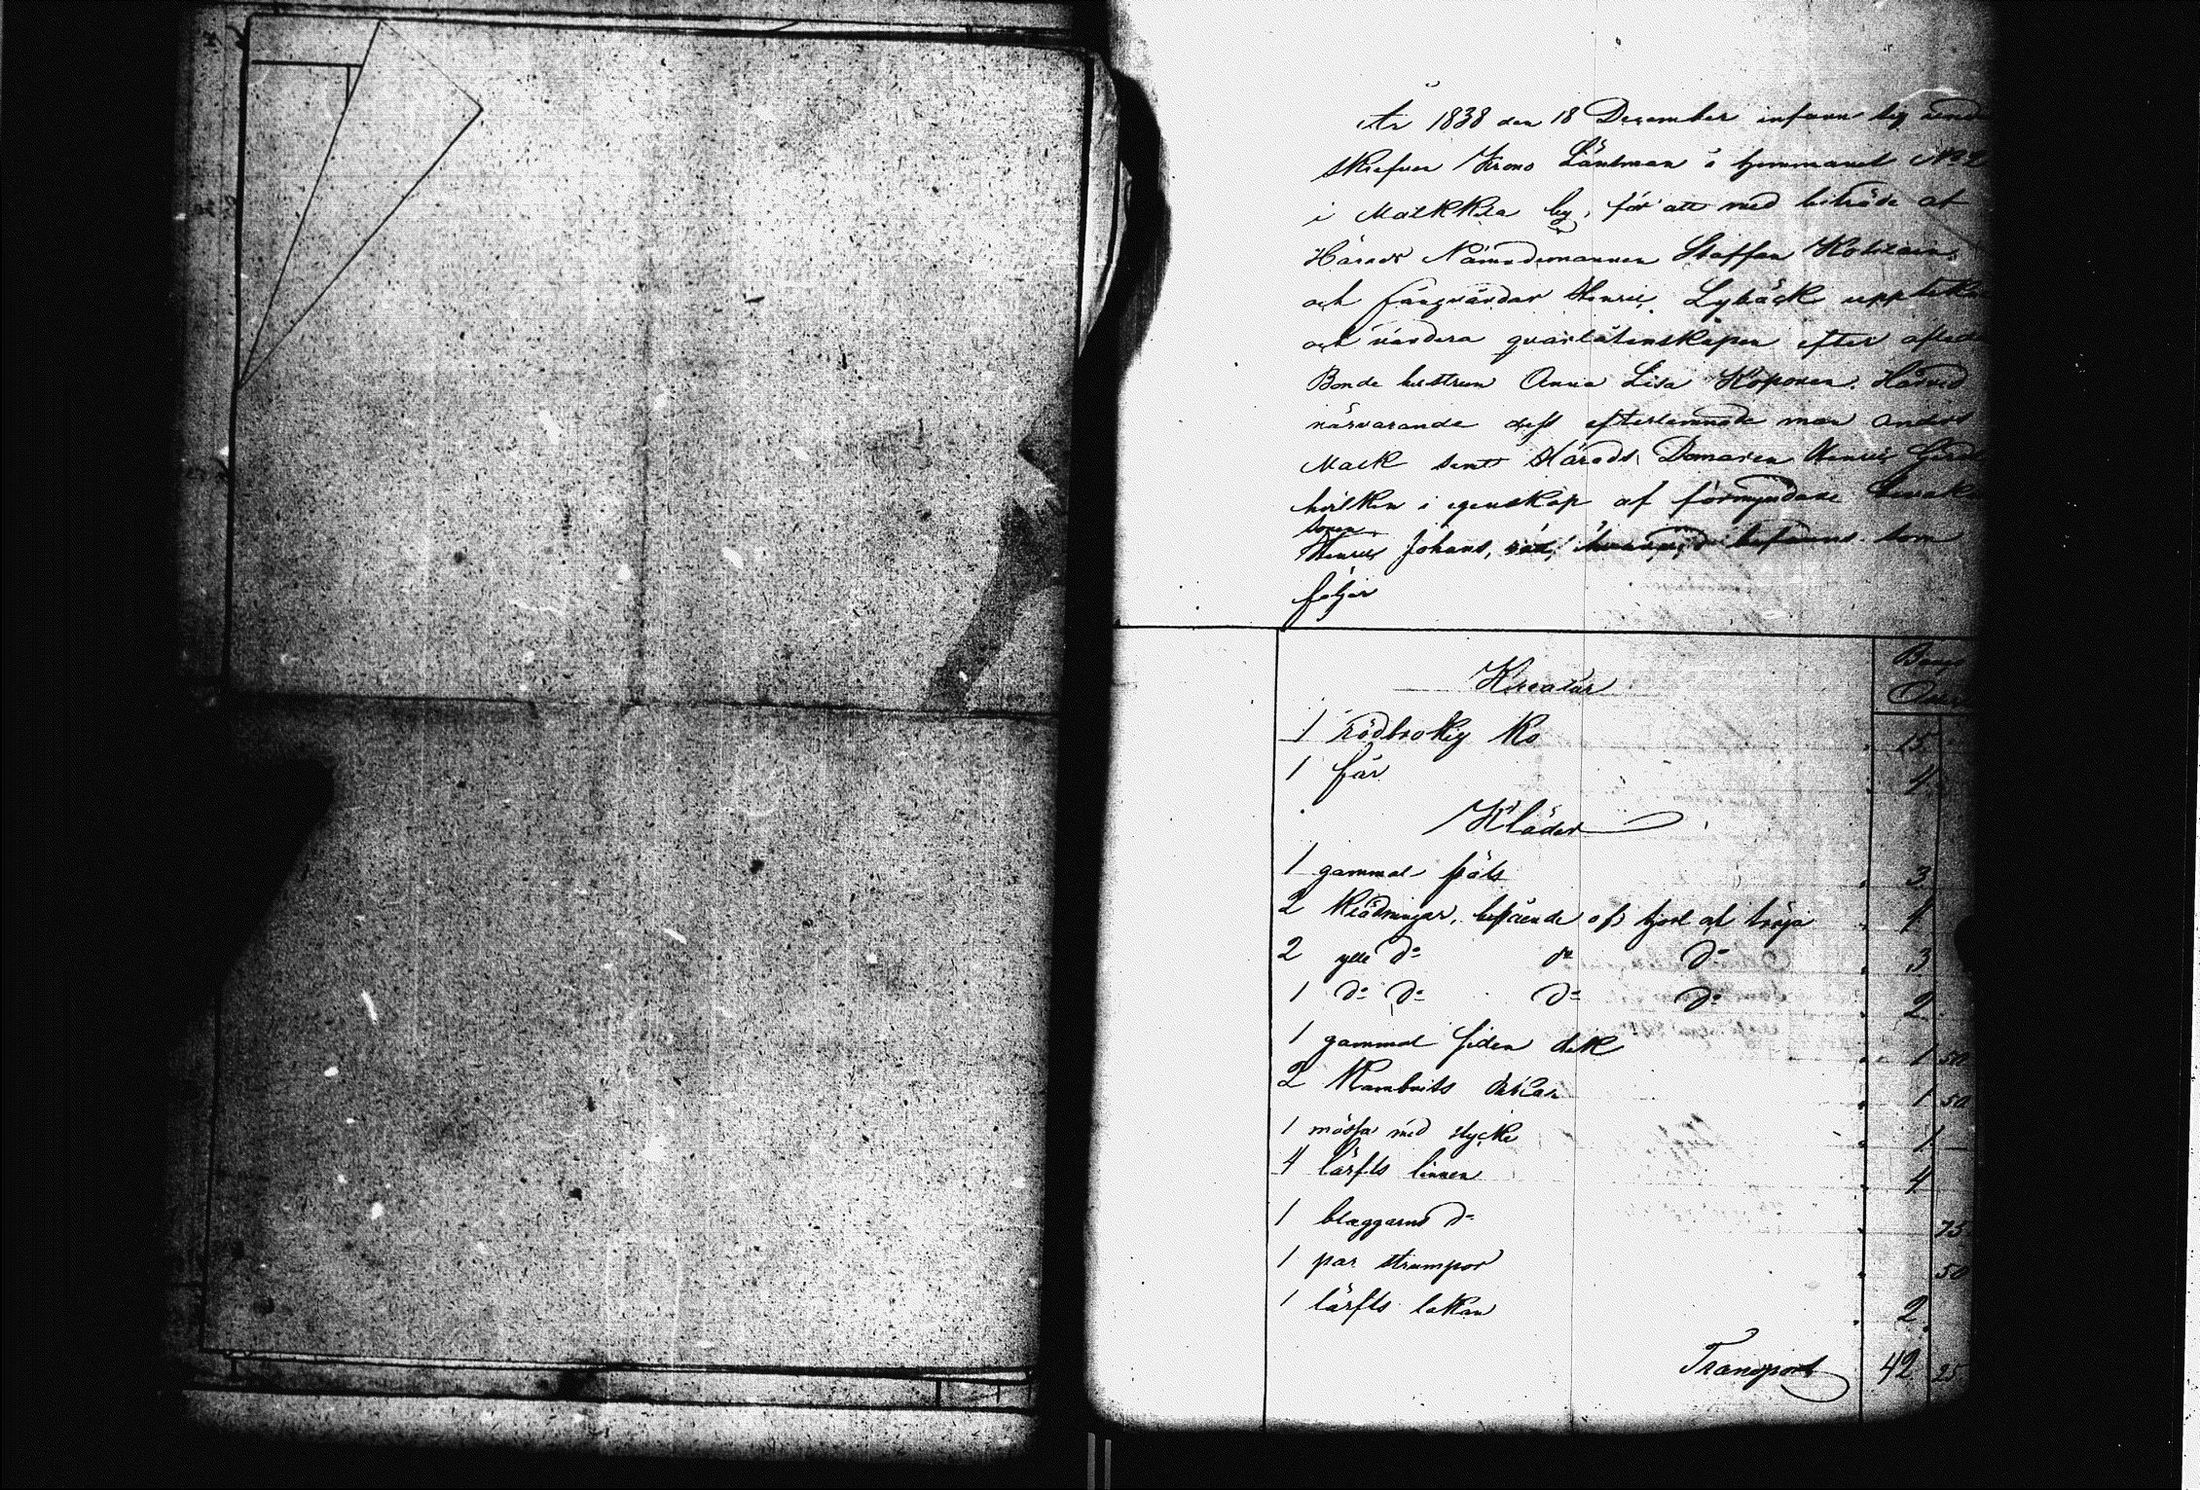 År 1838 den 18 December infann sig
skrefven Krono Länsman å hemmanet N:o 2
i Malkkila by, för att med biträde af
Härads Nämndemannen Staffan
och fångvärdar Henric Lybäck
och värdera qvarlåtenskapen efter
Bonde hustrun Anna Lisa Koponen. Härvid
närvarande dess efterlemnade man Anders
Malk samt Härads Domaren Henric
hvilken i egenskap af förmyndare
sonen
Henric Johans, befanns som
följer
Kreatur
1 rödbrokig Ko 15
1 får 1
Kläder
1 gammal päls 3
2 Klädningar, bestående af kjol och tröja 4
2 ylle d:o d:o d:o 3
1 d:o d:o d:o d:o 2
1 gammal siden duk 1 50
2 Kambriks dukar 1 50
1 mössa med stycke 1
4 lärfts linnen 4
1 blaggarns d:o 75
1 par strumpor 50
1 lärfts lakan 2
Transport 42 25